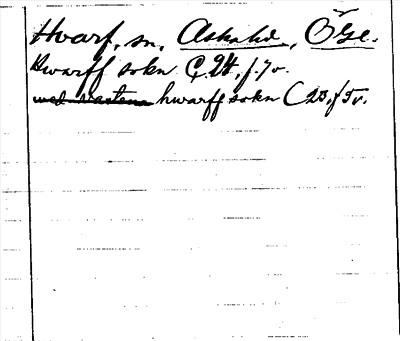 Hvarf, sn, Askahd, ÖGl.
Hwarff sokn C 24, f. 7 v.
wed vastena hwarff sokn C 23, f 5 v.